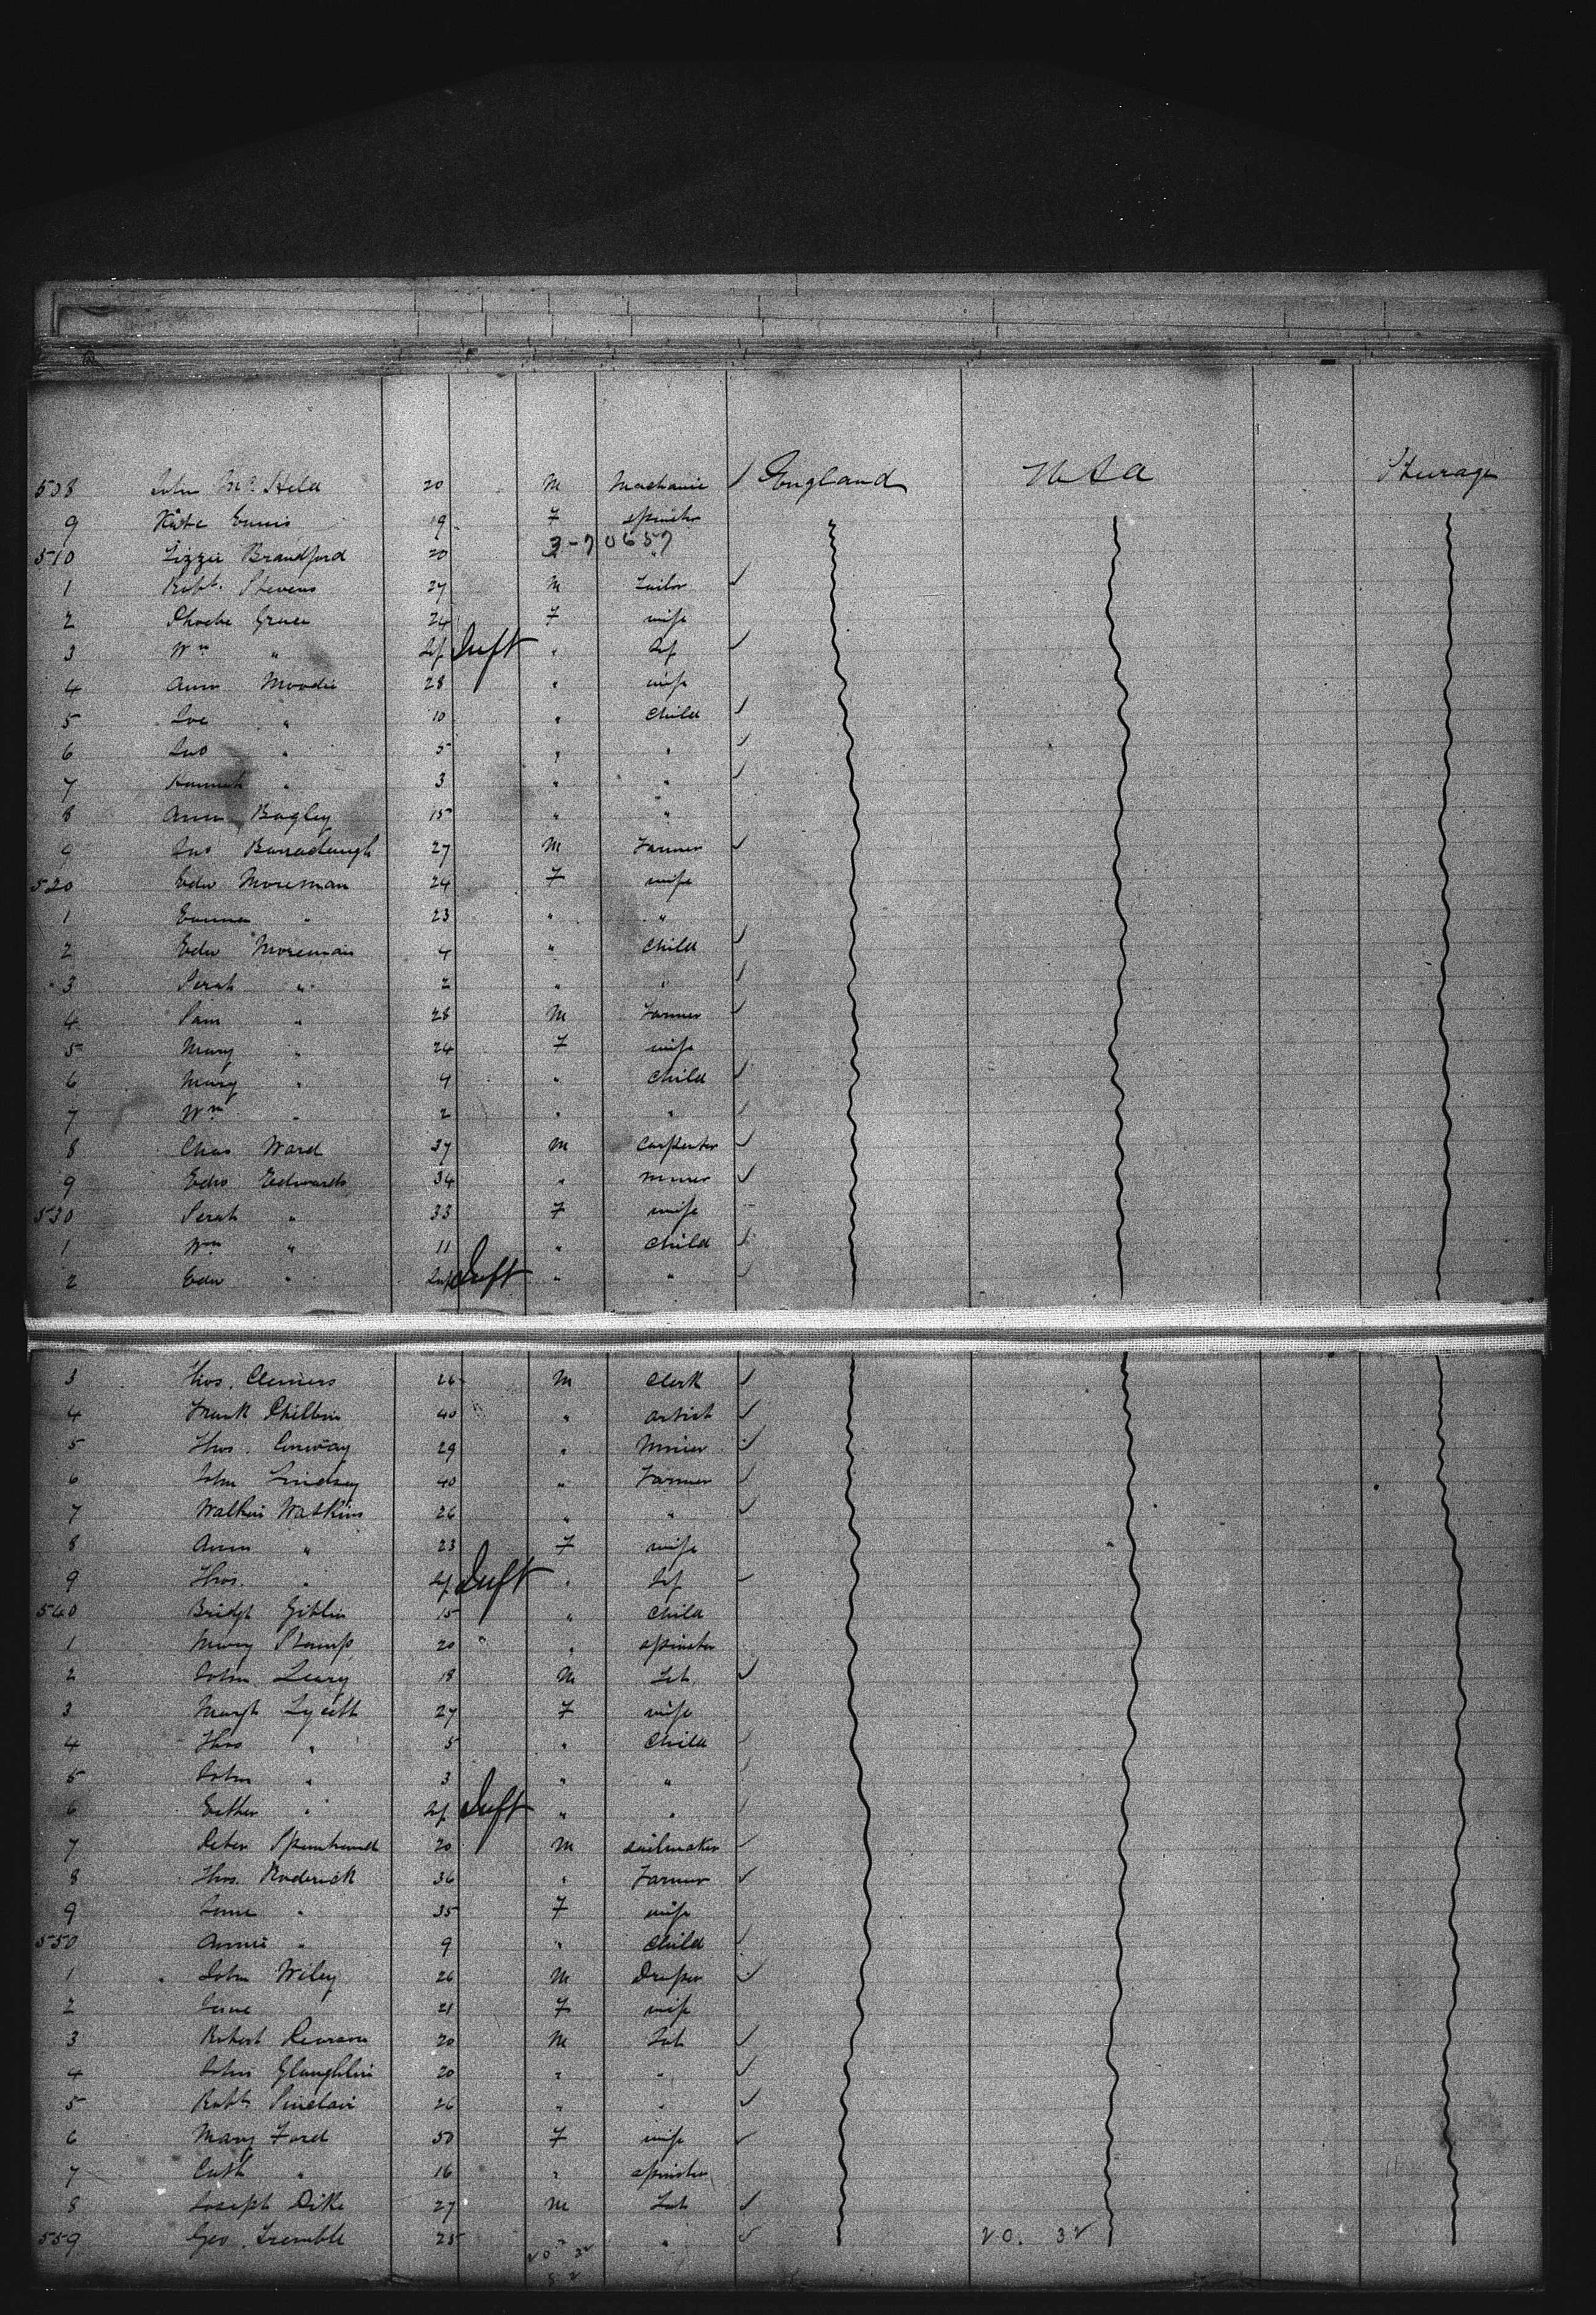 508 John Held 20 M Mechanic ✓ England USA Sturage
9 Kate Ennis 19 F spinster
510 Lizzie Brandford 20 3-70657 "
1 Robt. Stevens 27 M Tailor ✓
2 Phoebe Green 24 F wife
3 Wm " Inf Inft " Inf ✓
4 Ann Moodie 28 " wife
5 " 10 " Child ✓
6 Jno " 5 " " ✓
7 Hannah " 3 " " ✓
8 Ann Bagley 15 " "
9 Jno Barraclough 27 M Farmer ✓
520 Edw Moreman 24 F wife
1 Emma " 23 " "
2 Edw Moreman 4 " Child ✓
3 Sarah " 2 " " ✓
4 Sam " 28 M Farmer ✓
5 Mary " 24 F wife
6 Mary " 4 " Child ✓
7 Wm " 2 " " ✓
8 Chas Ward 37 M Carpenter ✓
9 Edw Edwards 34 " miner ✓
530 Sarah " 33 F wife
1 Wm " 11 " Child ✓
2 Edw " Inf Inft " " ✓
3 Thos. Clemens 26 M Clerk ✓
4 Frank Philbin 40 " artist ✓
5 Thos. Conway 29 " Miner ✓
6 John Lindsey 40 " Farmer ✓
7 Watkin Watkins 26 " " ✓
8 Ann " 23 F wife
9 Thos. " Inf Inft " Inf ✓
540 Bridgt Giblin 15 " Child
1 Mary Stamp 20 " spinster
2 John Leary 18 M Lab ✓
3 Margt Lycett 27 F wife
4 Thos " 5 " Child ✓
5 John " 3 " "
6 Esther " Inf Inft " " ✓
7 Peter 20 M sailmaker ✓
8 Thos. Roderick 36 " Farmer ✓
9 Jane " 35 F wife
550 Annie " 9 " Child ✓
1 John Wiley 26 M Draper ✓
2 Jane 21 F wife
3 Robert Pearson 20 M Lab ✓
4 John Glaughlin 20 " " ✓
5 Robt. Sinclair 26 " " ✓
6 Mary Ford 50 F wife ✓
7 Cath " 16 " spinster
8 Joseph Dike 27 M Lab ✓
559 Geo. Tremble 25 " " ✓ 20. 32
20 32